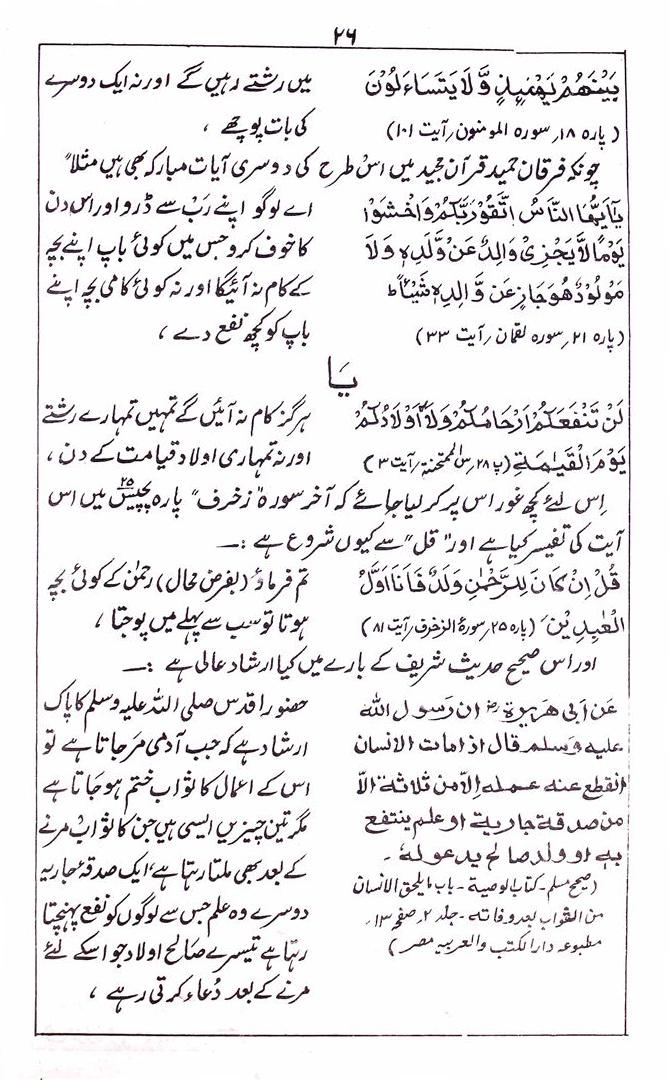 ۲۶
بَيْنَهُمْ يَوْمَئِذٍ وَّلَا يَتَسَاءَلُوْنَ
(پارہ ۱۸، سورہ المومنون، آیت ۱۰۱)
میں رشتے رہیں گے اور نہ ایک دوسرے
کی بات پوچھے ،
چونکہ فرقان حمید قرآن مجید میں اس طرح کی دوسری آیات مبارکہ بھی ہیں مثلاً
يٰۤاَيُّهَا النَّاسُ اتَّقُوْ رَبَّكُمْ وَاخْشَوْا
يَوْمًا لَّا يَجْزِىْ وَالِدٌ عَنْ وَّلَدِهٖ وَلَا
مَوْلُوْدٌ هُوَ جَازٍ عَنْ وَّالِدِهٖ شَيْـًٔا ط
(پارہ ۲۱، سورہ لقمان، آیت ۳۳)
اے لوگو اپنے رب سے ڈرو اور اس دن
کا خوف کرو جس میں کوئی باپ اپنے بچہ
کے کام نہ آئیگا اور نہ کوئی کامی بچہ اپنے
باپ کو کچھ نفع دے ،
یا
لَنْ تَنْفَعَكُمْ اَرْحَامُكُمْ وَلَاۤ اَوْلَادُكُمْ
يَوْمَ الْقِيٰمَةِ (پ ۲۸، س الممتحنہ، آیت ۳)
ہرگز کام نہ آئیں گے تمہیں تمہارے رشتے
اور نہ تمہاری اولاد قیامت کے دن ،
اِس لئے کچھ غور اس پر کر لیا جائے کہ آخر سورہ "زخرف" پارہ پچیس ۲۵ میں اس
آیت کی تفسیر کیا ہے اور "قل" سے کیوں شروع ہے :۔
قُلْ اِنْ كَانَ لِلرَّحْمٰنِ وَلَدٌ فَاَنَا اَوَّلُ
الْعٰبِدِيْنَ (پارہ ۲۵، سورۃ الزخرف، آیت ۸۱)
تم فرماؤ (بفرض محال) رحمٰن کے کوئی بچہ
ہوتا تو سب سے پہلے میں پوجتا ،
اور اس صحیح حدیث شریف کے بارے میں کیا ارشاد عالی ہے :۔
عَن اَبی هريرة رض ان رسول الله
عليه وسلم قال اذا مات الانسان
انقطع عنه عمله اِلا من ثلاثة الا
من صدقة جارية او علم ينتفع
به او ولد صالح يدعو له ۔
(صحیح مسلم ۔ کتاب الوصیۃ ۔ باب ما یلحق الانسان
من الثواب بعد وفاتہ ۔ جلد ۲، صفحہ ۱۳،
مطبوعہ دار الکتب والعربیہ مصر)
حضور اقدس صلی اللہ علیہ وسلم کا پاک
ارشاد ہے کہ جب آدمی مر جاتا ہے تو
اس کے اعمال کا ثواب ختم ہو جاتا ہے
مگر تین چیزیں ایسی ہیں جن کا ثواب مرنے
کے بعد بھی ملتا رہتا ہے، ایک صدقۂ جاریہ
دوسرے وہ علم جس سے لوگوں کو نفع پہنچتا
رہتا ہے تیسرے صالح اولاد جو اسکے لئے
مرنے کے بعد دُعاء کرتی رہے ،